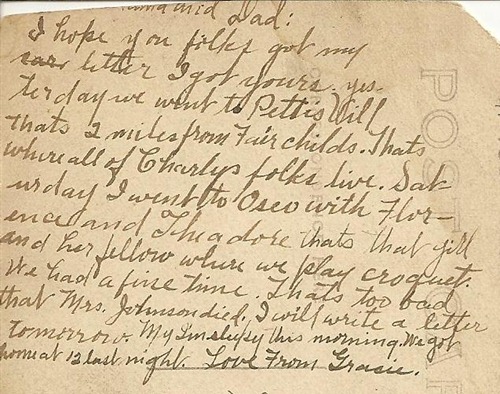 and Dad:
I hope you folks got my
letter I got yours. yes-
terday we went to Pettis Vill
thats 2 miles from Fairchilds. Thats
where all of Charlys folks live. Sat
urday I went to Oseo with Flor-
ence and Theadore thats that gill
and her fellow where we play croquet.
We had a fine time. Thats too bad
that Mrs. Johnson died. I will write a letter
tomorrow. My I'm sleepy this morning. We got
home at 12 last night. Love From Gracie.
POST CAR